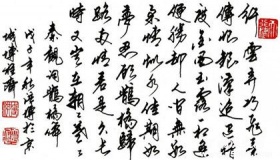 纖雲弄巧飛星
傳恨銀漢迢迢暗
度金風玉露一相逢
便勝卻人間無數
柔情似水佳期如
夢忍顧鵲橋歸
路兩情若是久長
時又豈在朝朝暮暮
秦觀詞鵲橋仙
戊子年秋於京
城博雅齋